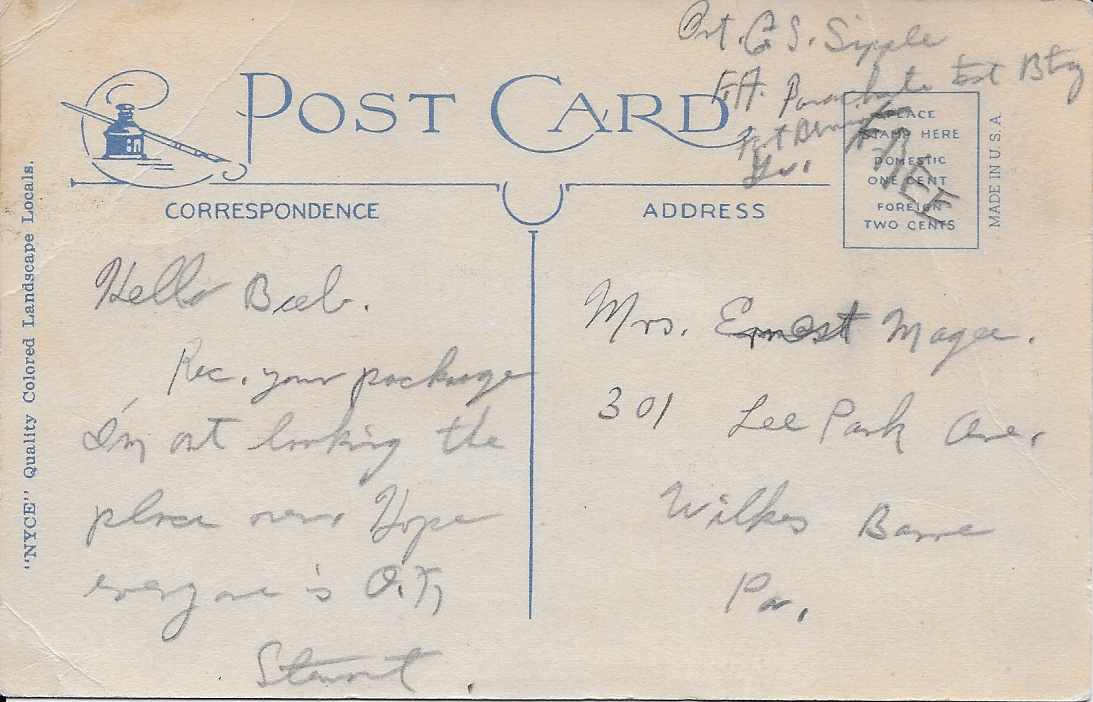 Pvt. G. S. Sipple
F.A. Parachute Test Btry
Fort Benning
Ga.
POST CARD
FREE
PLACE
STAMP HERE
DOMESTIC
ONE CENT
FOREIGN
TWO CENTS
MADE IN U.S.A.
CORRESPONDENCE
ADDRESS
"NYCE" Quality Colored Landscape Locals.
Hello Bieb.
Rec. your package
I'm out looking the
place over Hope
everyone is O.K,
Stewart.
Mrs. Ernest Magee.
301 Lee Park Ave,
Wilkes Barre
Pa,